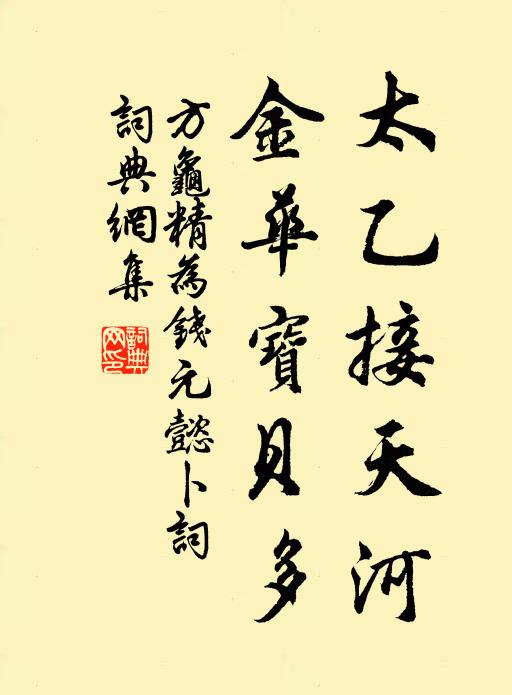 太乙接天河
金華寶貝多
方龜精為錢元懿卜詞
詞典網集
詞典網印